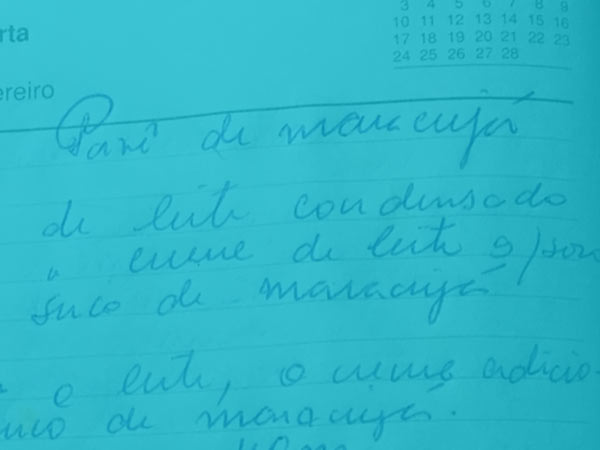 3 4 5 6 7 8 9
10 11 12 13 14 15 16
17 18 19 20 21 22 23
24 25 26 27 28
rta
ereiro
Pavê de maracujá
de leite condensado
" creme de leite s/ soro
suco de maracujá
o leite, o creme adicio-
suco de maracujá.